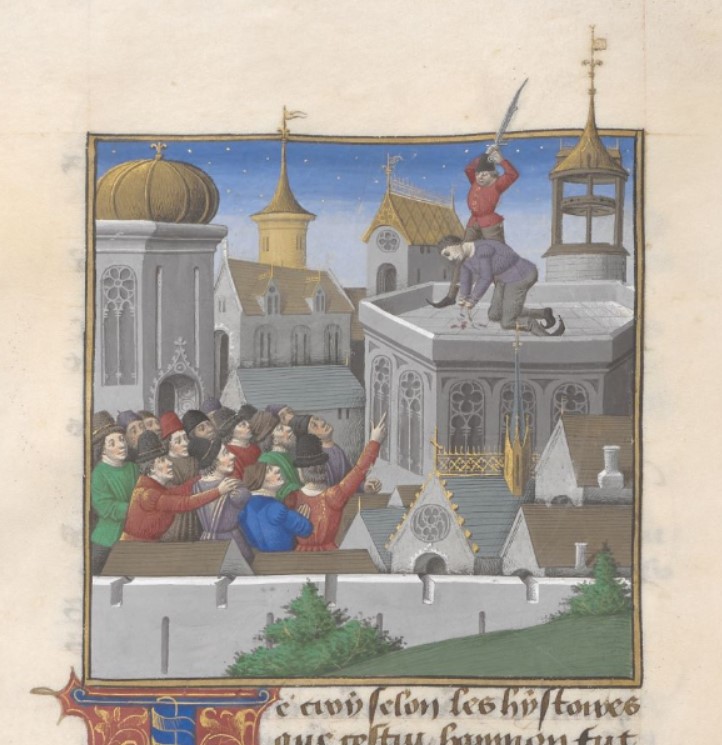 Ie croy selon les hystoires
que cestui hammon fut